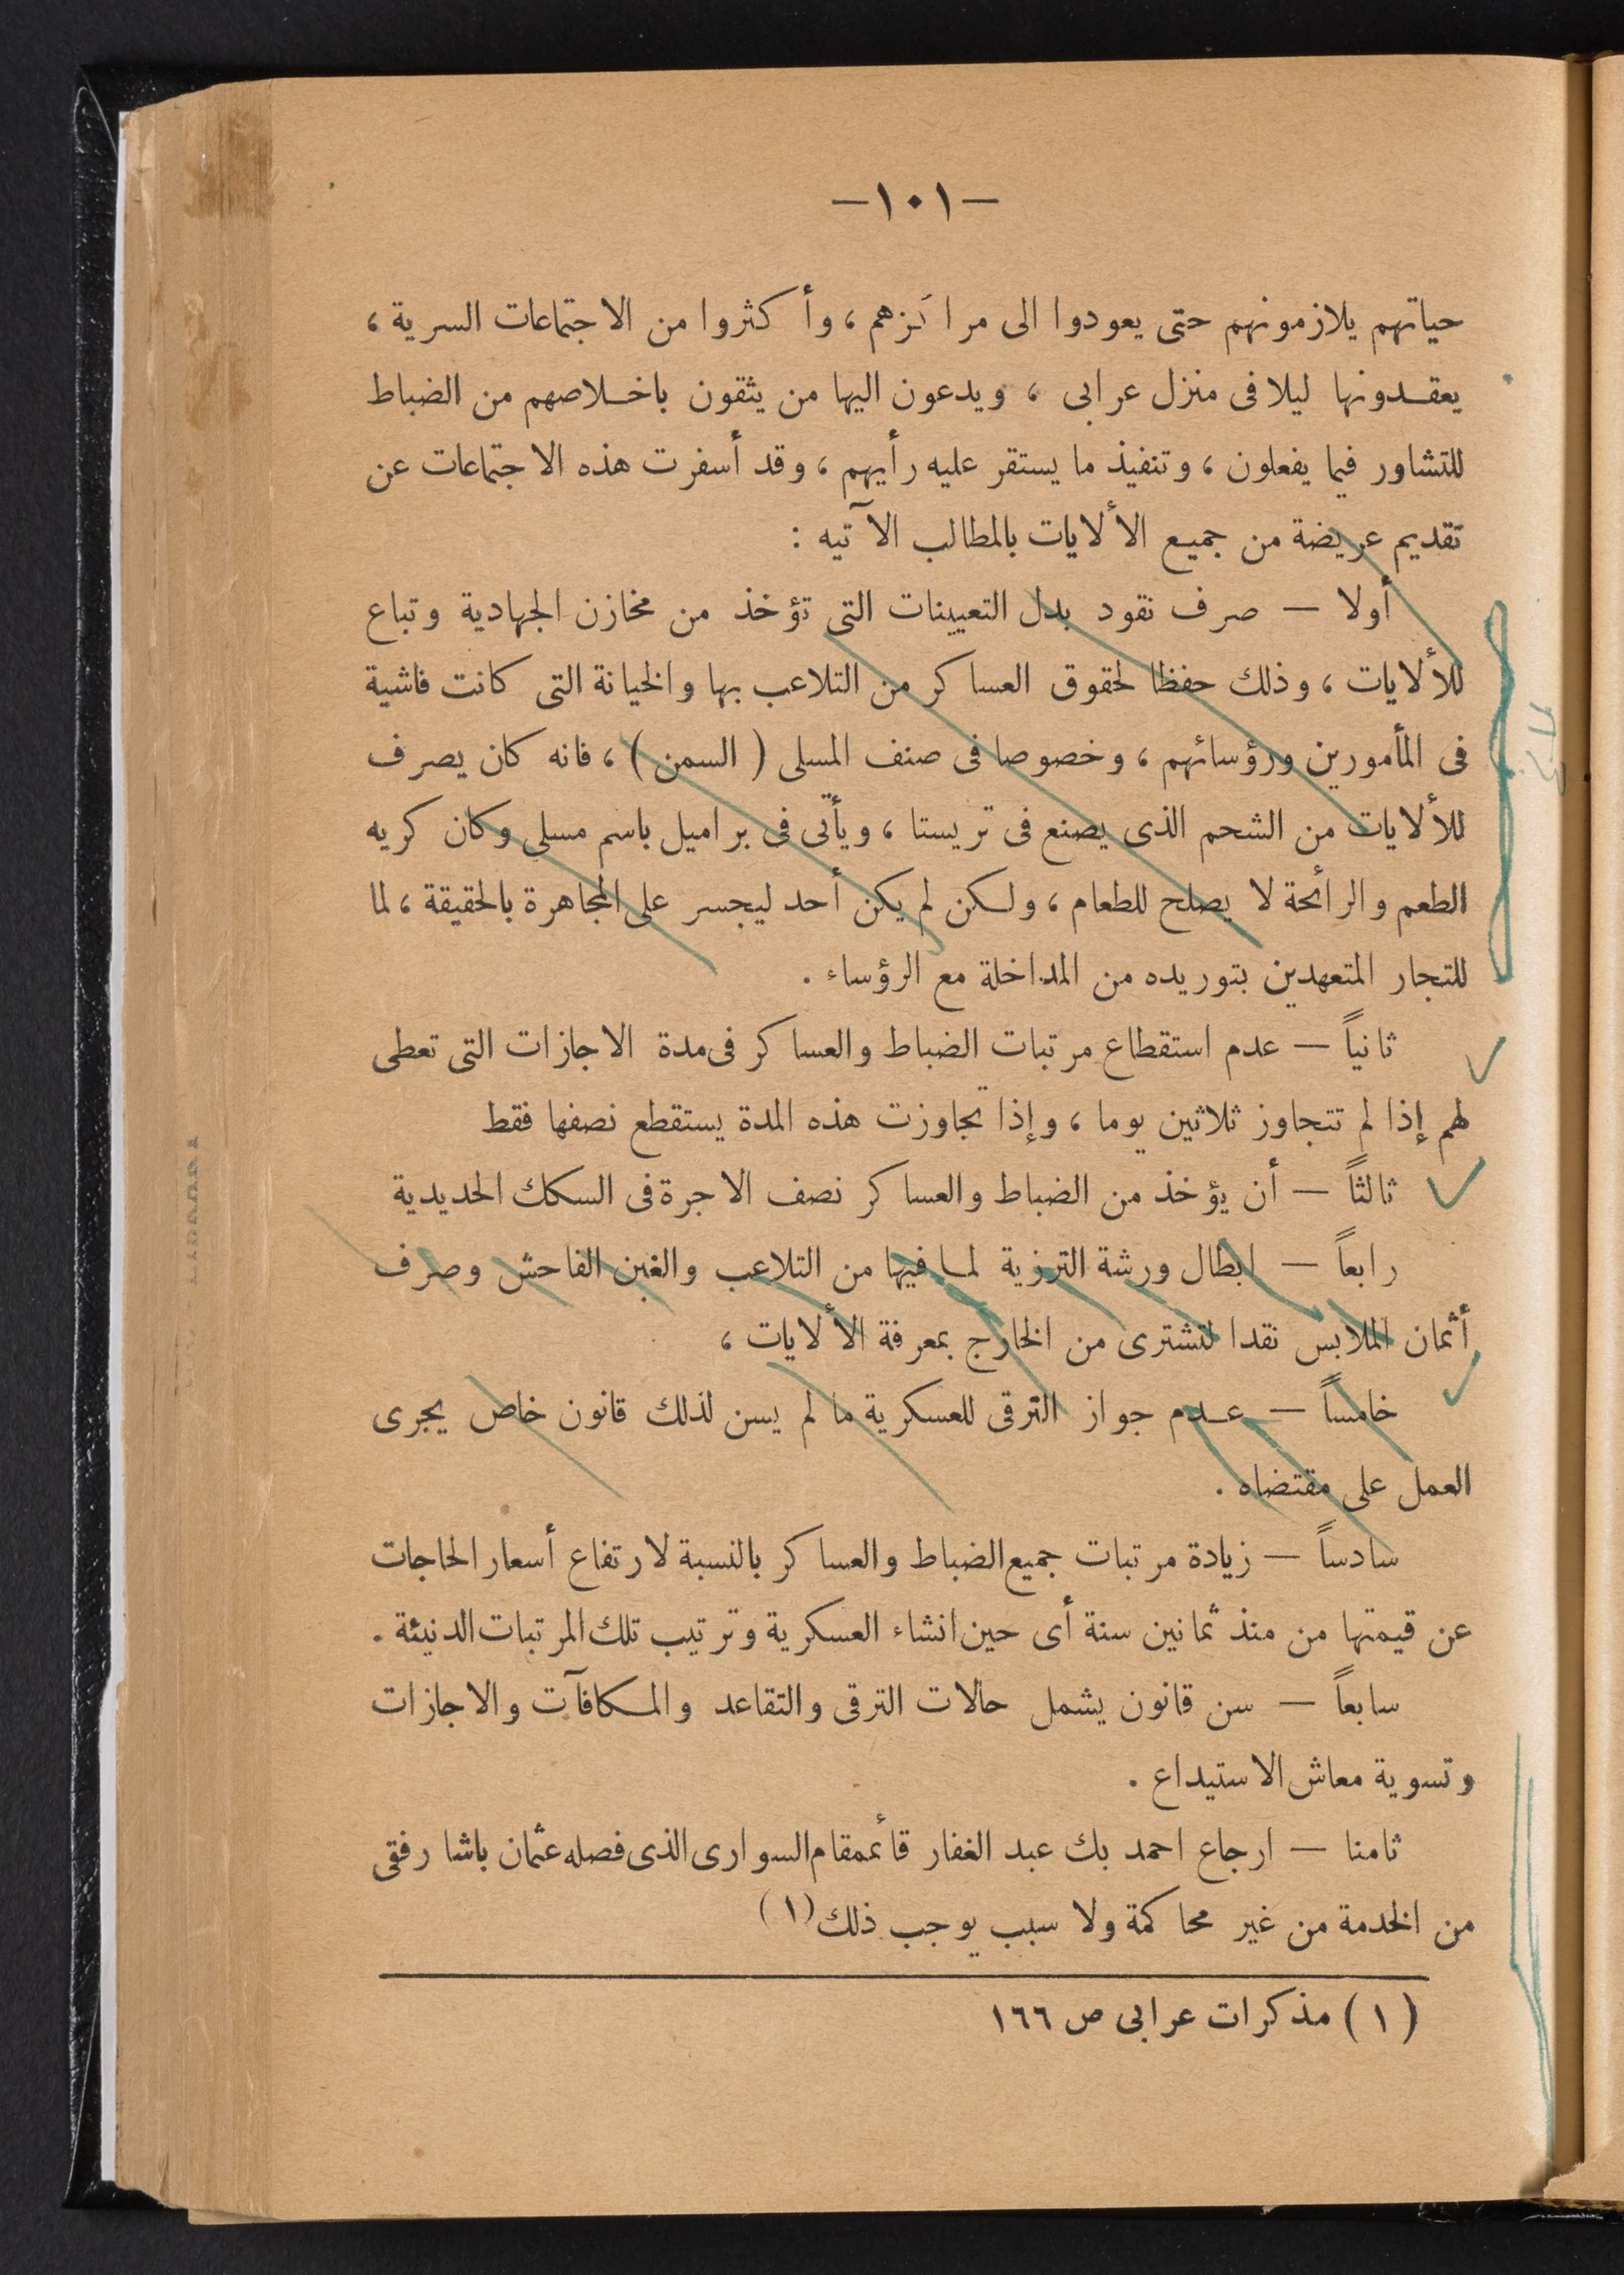 —١٠١—
حياتهم يلازمونهم حتى يعودوا الى مراكزهم ، وأكثروا من الاجتماعات السرية ،
يعقدونها ليلا فى منزل عرابى ، ويدعون اليها من يثقون باخلاصهم من الضباط
للتشاور فيما يفعلون ، وتنفيذ ما يستقر عليه رأيهم ، وقد أسفرت هذه الاجتماعات عن
تقديم عريضة من جميع الألايات بالمطالب الآتيه :
أولا — صرف نقود بدل التعيينات التى تؤخذ من مخازن الجهادية وتباع
للألايات ، وذلك حفظا لحقوق العساكر من التلاعب بها والخيانة التى كانت فاشية
فى المأمورين ورؤسائهم ، وخصوصا فى صنف المسلى ( السمن ) ، فانه كان يصرف
للألايات من الشحم الذى يصنع فى تريستا ، ويأتى فى براميل باسم مسلى وكان كريه
الطعم والرائحة لا يصلح للطعام ، ولكن لم يكن أحد ليجسر على المجاهرة بالحقيقة ، لما
للتجار المتعهدين بتوريده من المداخلة مع الرؤساء .
ثانياً — عدم استقطاع مرتبات الضباط والعساكر فى مدة الاجازات التى تعطى
لهم إذا لم تتجاوز ثلاثين يوما ، وإذا تجاوزت هذه المدة يستقطع نصفها فقط
ثالثاً — أن يؤخذ من الضباط والعساكر نصف الاجرة فى السكك الحديدية
رابعاً — ابطال ورشة الترزية لما فيها من التلاعب والغبن الفاحش وصرف
أثمان الملابس نقدا لتشترى من الخارج بمعرفة الألايات ،
خامساً — عدم جواز الترقى للعسكرية ما لم يسن لذلك قانون خاص يجرى
العمل على مقتضاه .
سادساً — زيادة مرتبات جميع الضباط والعساكر بالنسبة لارتفاع أسعار الحاجات
عن قيمتها من منذ ثمانين سنة أى حين انشاء العسكرية وترتيب تلك المرتبات الدنيئة .
سابعاً — سن قانون يشمل حالات الترقى والتقاعد والمكافآت والاجازات
وتسوية معاش الاستيداع .
ثامنا — ارجاع احمد بك عبد الغفار قائممقام السوارى الذى فصله عثمان باشا رفقى
من الخدمة من غير محاكمة ولا سبب يوجب ذلك (١)
(١) مذكرات عرابى ص ١٦٦